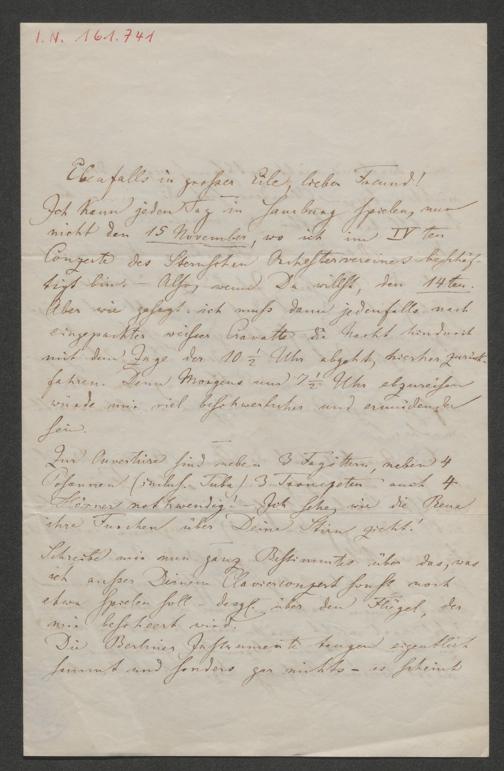 I.N. 161.741
Ebenfalls in grosser Eile, lieber Freund!
Ich kann jeden Tag in Hamburg spielen, nur
nicht den 15 November, wo ich im IVten
Conzerte des Sternschen Orchestervereines beschäf-
tigt bin. – Also, wenn Du willst, den 14ten.
Aber wie gesagt: ich muss dann jedenfalls nach
eingepackter weisser Cravatte die Nacht hindurch
mit dem Zuge der 10 ½ Uhr abgeht, hierher zurück-
fahren. Denn Morgens um 7 ½ Uhr abzureisen
würde mir viel beschwerlicher und ermüdender
sein.
Zur Ouvertüre sind neben 3 Fagotten, neben 4
Posaunen (inclus. Tuba) 3 Trompeten auch 4
Hörner nothwendig! – Ich sehe, wie die
ihre Furchen über Deine Stirn zieht!
Schreibe mir nun ganz Bestimmtes über das, was
ich ausser Deinem Clavierconzert sonst noch
etwa spielen soll – desgl. über den Flügel, der
mir bescheert wird.
Die Berliner Instrumente taugen eigentlich
sammt und sonders gar nichts – es scheint